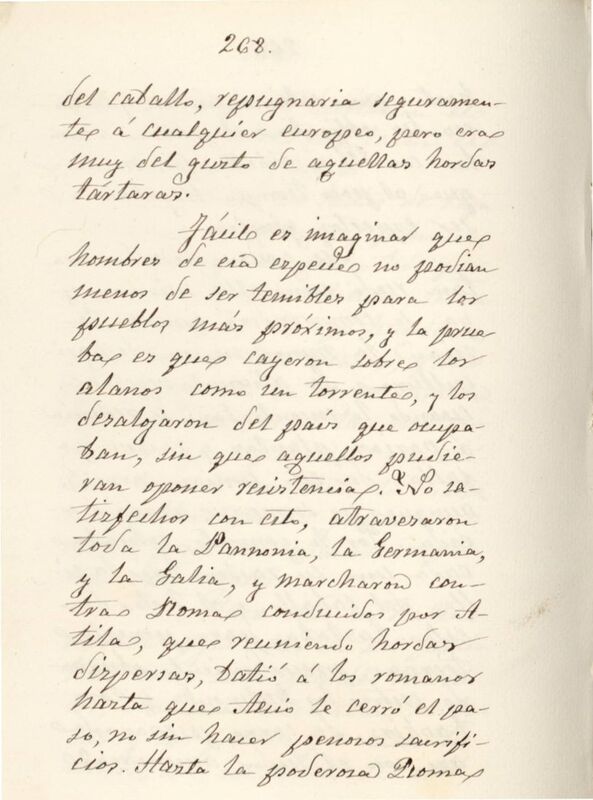 268.
del caballo, repugnaria seguramen-
te á cualquier europeo, pero era
muy del gusto de aquellas hordas
tártaras.
Fácil es imaginar que
hombres de esa especie no podian
menos de ser temibles para los
pueblos más próximos, y la prue
ba es que cayeron sobre los
alanos como un torrente, y los
desalojaron del país que ocupa-
ban, sin que aquellos pudie-
ran oponer resistencia. No sa-
tisfechos con esto, atravesaron
toda la Pannonia, la Germania,
y la Galia, y marcharon con-
tra Roma conducidos por A-
tila, que reuniendo hordas
dispersas, batió á los romanos
hasta que Aecio le cerró el pa-
so, no sin hacer penosos sacrifi-
cios. Hasta la poderosa Roma